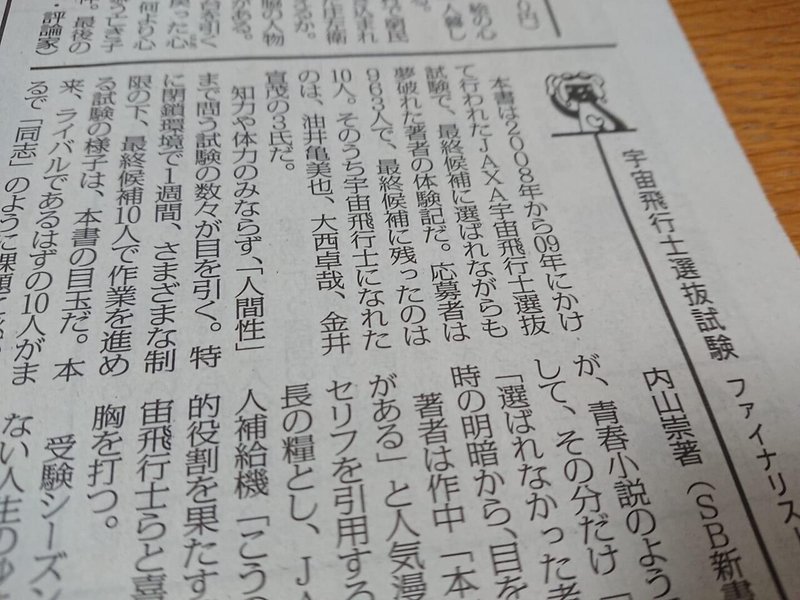 宇宙飛行士選抜試験 ファイナリスト
内山崇著(SB新書
本書は2008年から09年にかけ
て行われたJAXA宇宙飛行士選抜
試験で、最終候補に選ばれながらも
夢破れた著者の体験記だ。応募者は
963人で、最終候補に残ったのは
10人。そのうち宇宙飛行士になれた
のは、油井亀美也、大西卓哉、金井
宣茂の3氏だ。
知力や体力のみならず、「人間性」
まで問う試験の数々が目を引く。特
に閉鎖環境で1週間、さまざまな制
限の下、最終候補10人で作業を進め
る試験の様子は、本書の目玉だ。本
来、ライバルであるはずの10人がま
るで「同志」のように課題
が、青春小説のよう
して、その分だけ「
「選ばれなかった者
時の明暗から、目を
著者は作中「本
がある」と人気漫
セリフを引用する
長の糧とし、JA
人補給機「こうの
的役割を果たす
宙飛行士らと喜
胸を打つ。
受験シーズン
ない人生のゆ
0円)
絵の心
の人物
がある。
を引く
った心
何より心
亡き子
。最後の
・評論家)